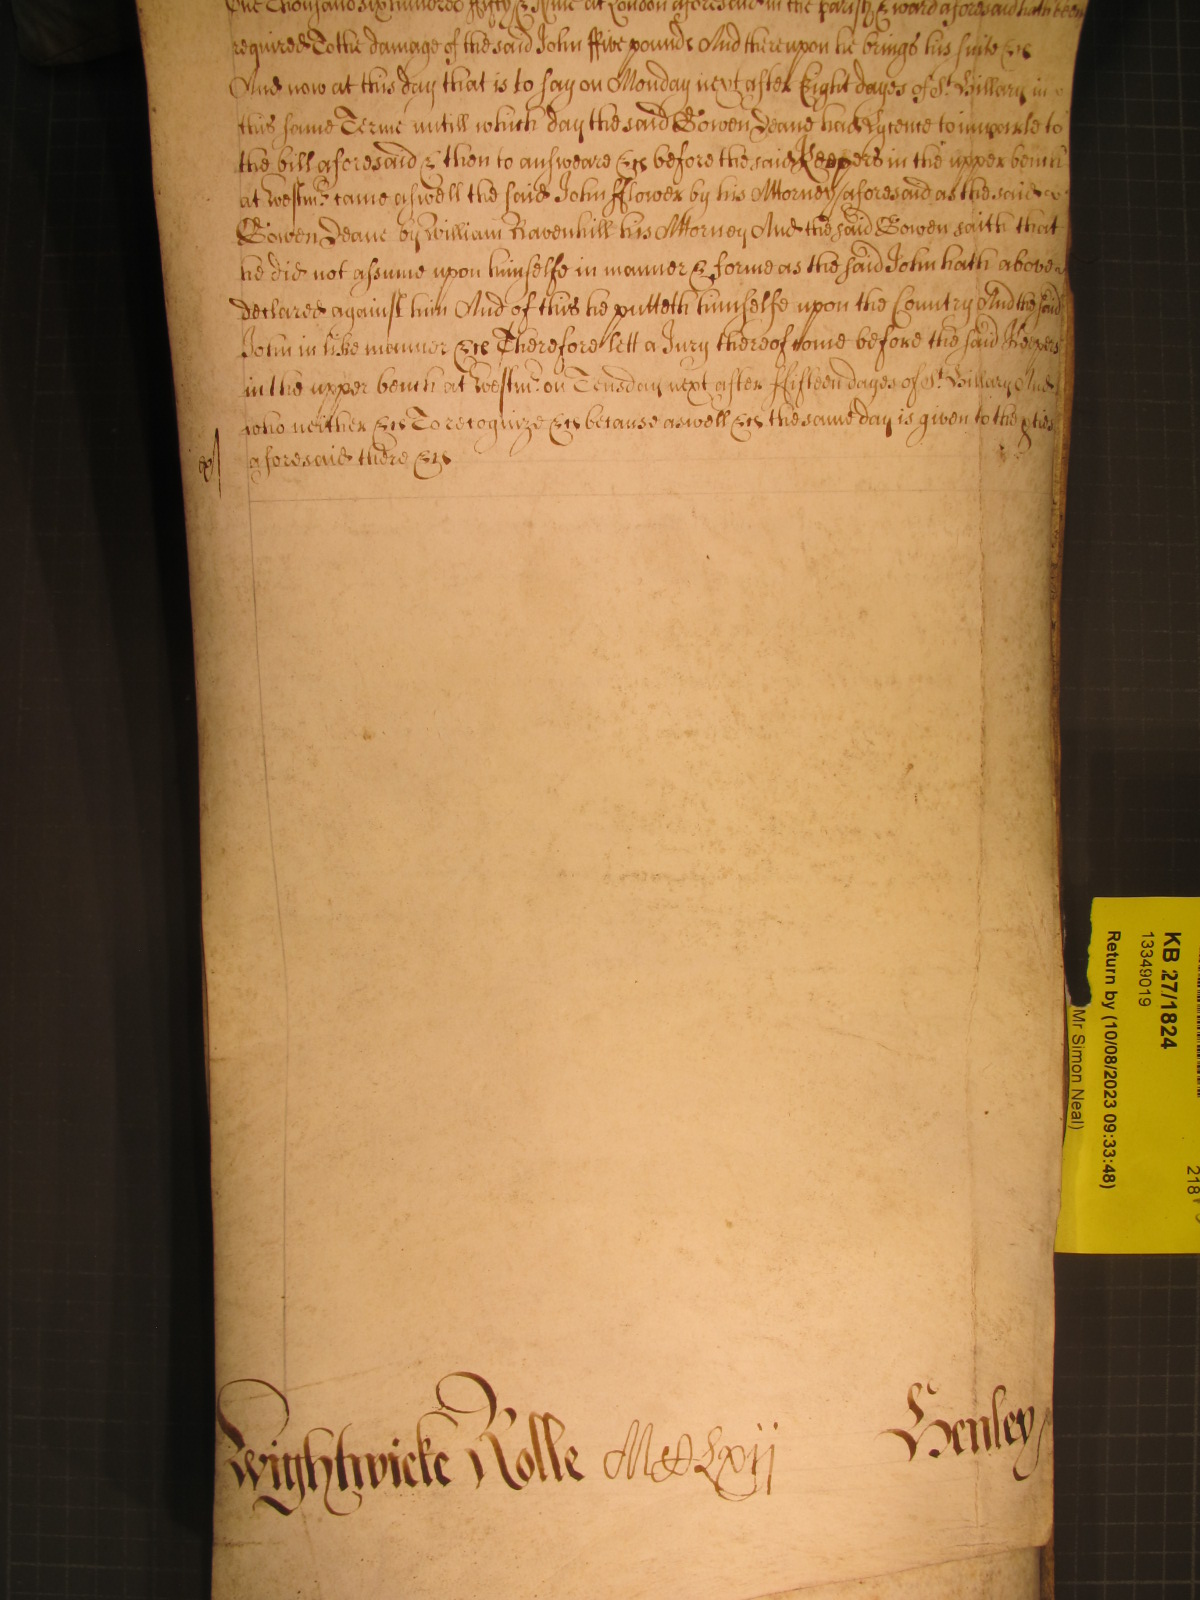 One Thousand six hundred ffifty & Nyne at London aforesaid in the parish & ward aforesaid hath been
required To the damage of the said John ffive pounds And thereupon he brings his suite &c
And now at this day that is to say on Monday next after Eight dayes of St. Hillary in
this same Terme untill which day the said Bowen Deane had Lycence to imparle to
the bill aforesaid & then to answeare &c before the said Keepers in the upper bench
at Westmr. came aswell the said John fflower by his Attorney aforesaid as the said
Bowen Deane by William Ravenhill his Attorney And the said Bowen saith that
he did not assume upon himselfe in manner & forme as the said John hath above
declared against him And of this he putteth himselfe upon the Country And the said
John in like manner &c Therefore lett a Jury thereof come before the said Keepers
in the upper bench at Westmr. on Teusday next after ffifteen dayes of St. Hillary And
who neither &c To recognize &c because aswell &c the same day is given to the pties
aforesaid there &c
Wightwicke Rolle MCLxij
Henley
KB 27/1824
13349019
Return by (10/08/2023 09:33:48)
Mr Simon Neal)